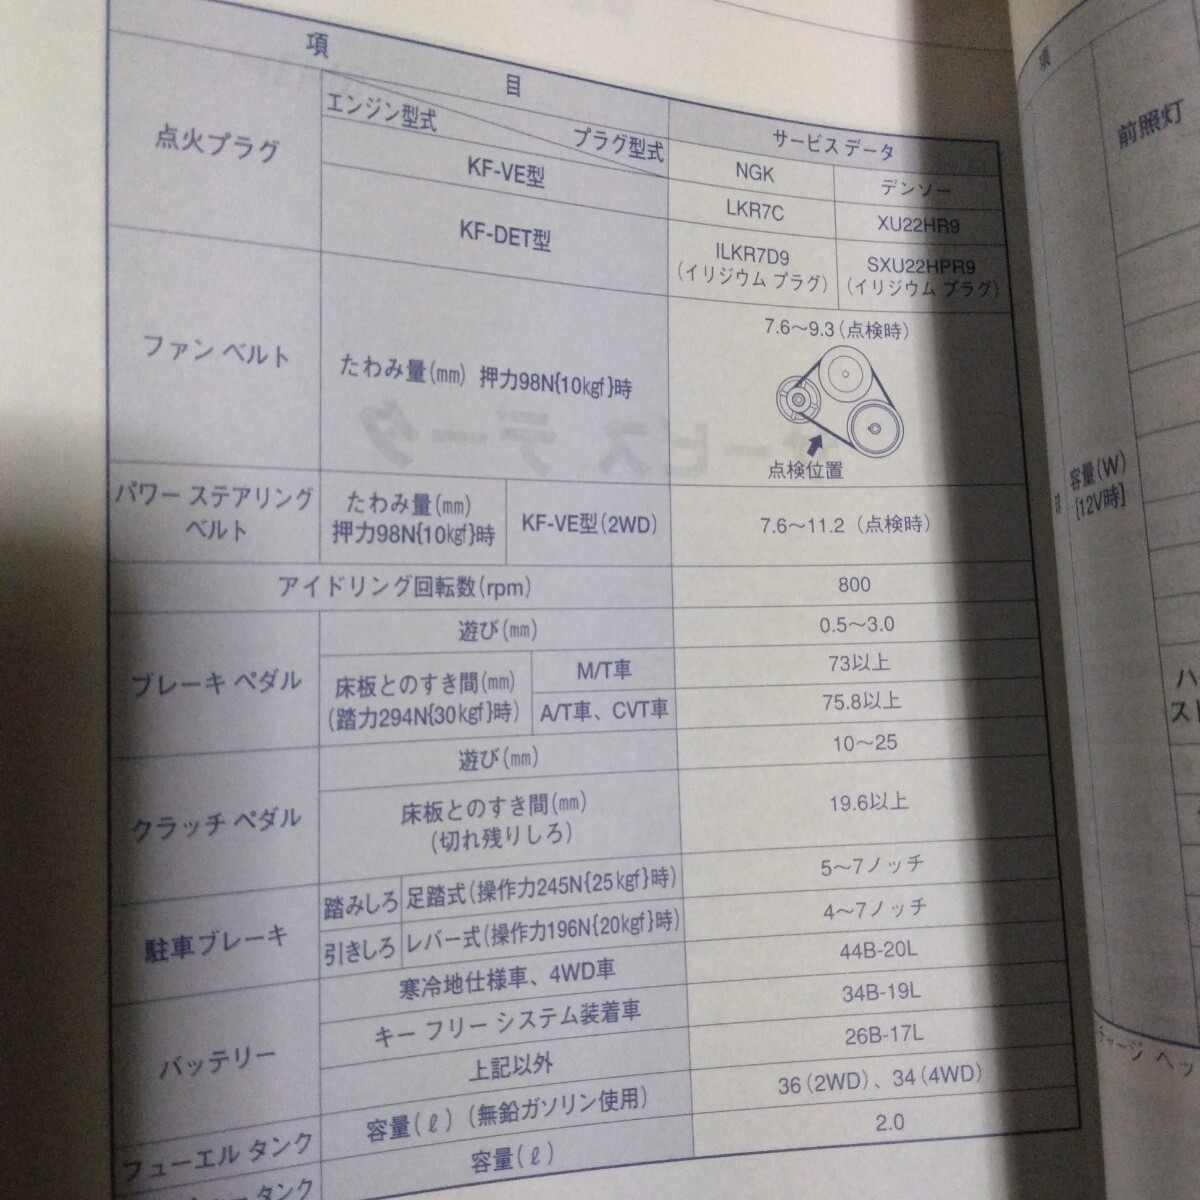 項 目
サービス データ
点火プラグ
エンジン型式
プラグ型式
NGK
デンソー
KF-VE型
LKR7C
XU22HR9
KF-DET型
ILKR7D9
(イリジウム プラグ)
SXU22HPR9
(イリジウム プラグ)
ファン ベルト
たわみ量(㎜) 押力98N{10㎏f}時
7.6～9.3(点検時)
点検位置
パワー ステアリング
ベルト
たわみ量(㎜)
押力98N{10㎏f}時
KF-VE型(2WD)
7.6～11.2(点検時)
アイドリング回転数(rpm)
800
ブレーキ ペダル
遊び(㎜)
0.5～3.0
床板とのすき間(㎜)
(踏力294N{30㎏f}時)
M/T車
73以上
A/T車、CVT車
75.8以上
クラッチ ペダル
遊び(㎜)
10～25
床板とのすき間(㎜)
(切れ残りしろ)
19.6以上
駐車ブレーキ
踏みしろ
足踏式(操作力245N{25㎏f}時)
5～7ノッチ
引きしろ
レバー式(操作力196N{20㎏f}時)
4～7ノッチ
バッテリー
寒冷地仕様車、4WD車
44B-20L
キー フリー システム装着車
34B-19L
上記以外
26B-17L
フューエル タンク
容量(ℓ)(無鉛ガソリン使用)
36(2WD)、34(4WD)
タンク
容量(ℓ)
2.0
項
前照灯
容量(W)
[12V時]
ハ
スト
チャージ ヘッ